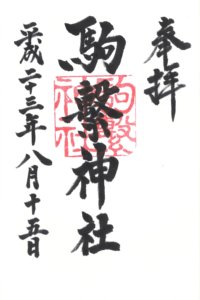 奉拝
駒繋神社
平成二十三年八月十五日
駒繋
神社